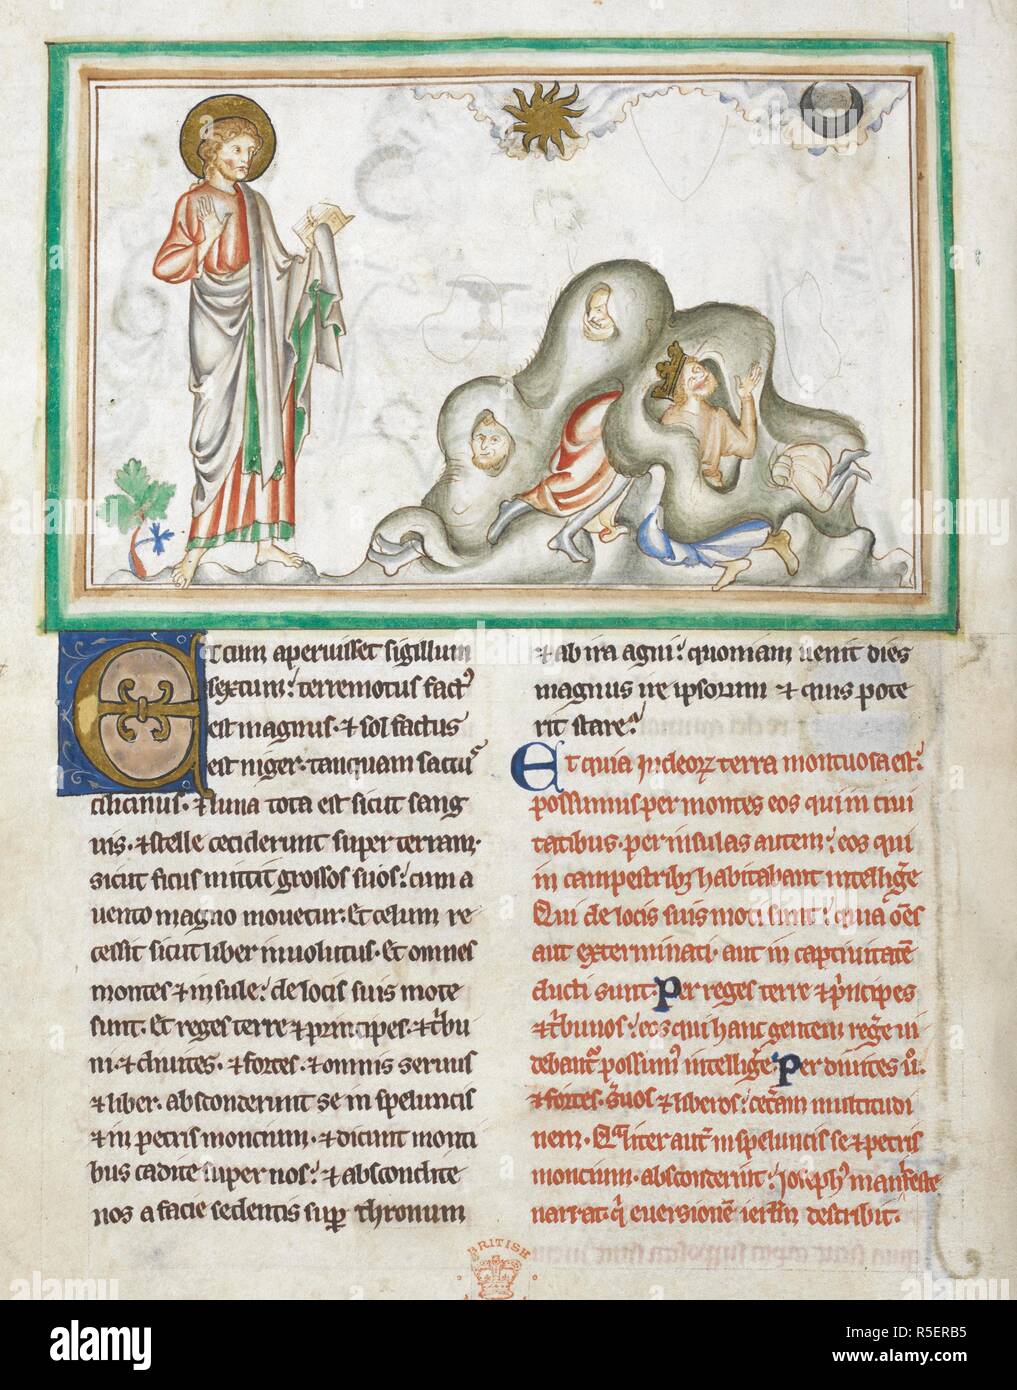 Et cum aperuisset sigillum
sextum: terremotus fact⁹
est magnus. ⁊ sol factus
est niger. tanquam saccus
cilicinus. ⁊ luna tota est sicut sang
uis. ⁊ stelle ceciderunt super terram.
sicut ficus mittit grossos suos: cum a
uento magno mouetur. Et celum re
cessit sicut liber inuolutus. Et omnes
montes ⁊ insule: de locis suis mote
sunt. Et reges terre ⁊ principes. ⁊ t̾bu
ni. ⁊ diuites. ⁊ fortes. ⁊ omnis seruus
⁊ liber. absconderunt se in speluncis
⁊ in petris moncium. ⁊ dicunt monti
bus cadite super nos: ⁊ abscondite
nos a facie sedentis sup̱ thronum
⁊ ab ira agni: quoniam uenit dies
magnus ire ipsorum ⁊ quis pote
rit stare:
Et quia iudeoꝝ terra montuosa est:
possumus per montes eos qui in ciui
tatibus. per insulas autem: eos qui
in campestribꝫ habitabant intellig̾e
Qui de locis suis moti sunt: quia om̄s
aut exterminati. aut in captiuitatē
ducti sunt. Per reges terre ⁊ p̾ncipes
⁊ t̾bunos: eos qui hanc gentem reg̾e ui
debant᷑ possum⁹ intellig̾e. Per diuites u̾.
⁊ fortes. s̾uos ⁊ liberos: cet̾am multitudi
nem. Qualiter aut̄ in speluncis se ⁊ petris
moncium. absconderint: ioseph⁹ manifeste
narrat. q̇ euersionē ierl̄m describit.
BRITISH
alamy
Image ID: R5ERB5
www.alamy.com